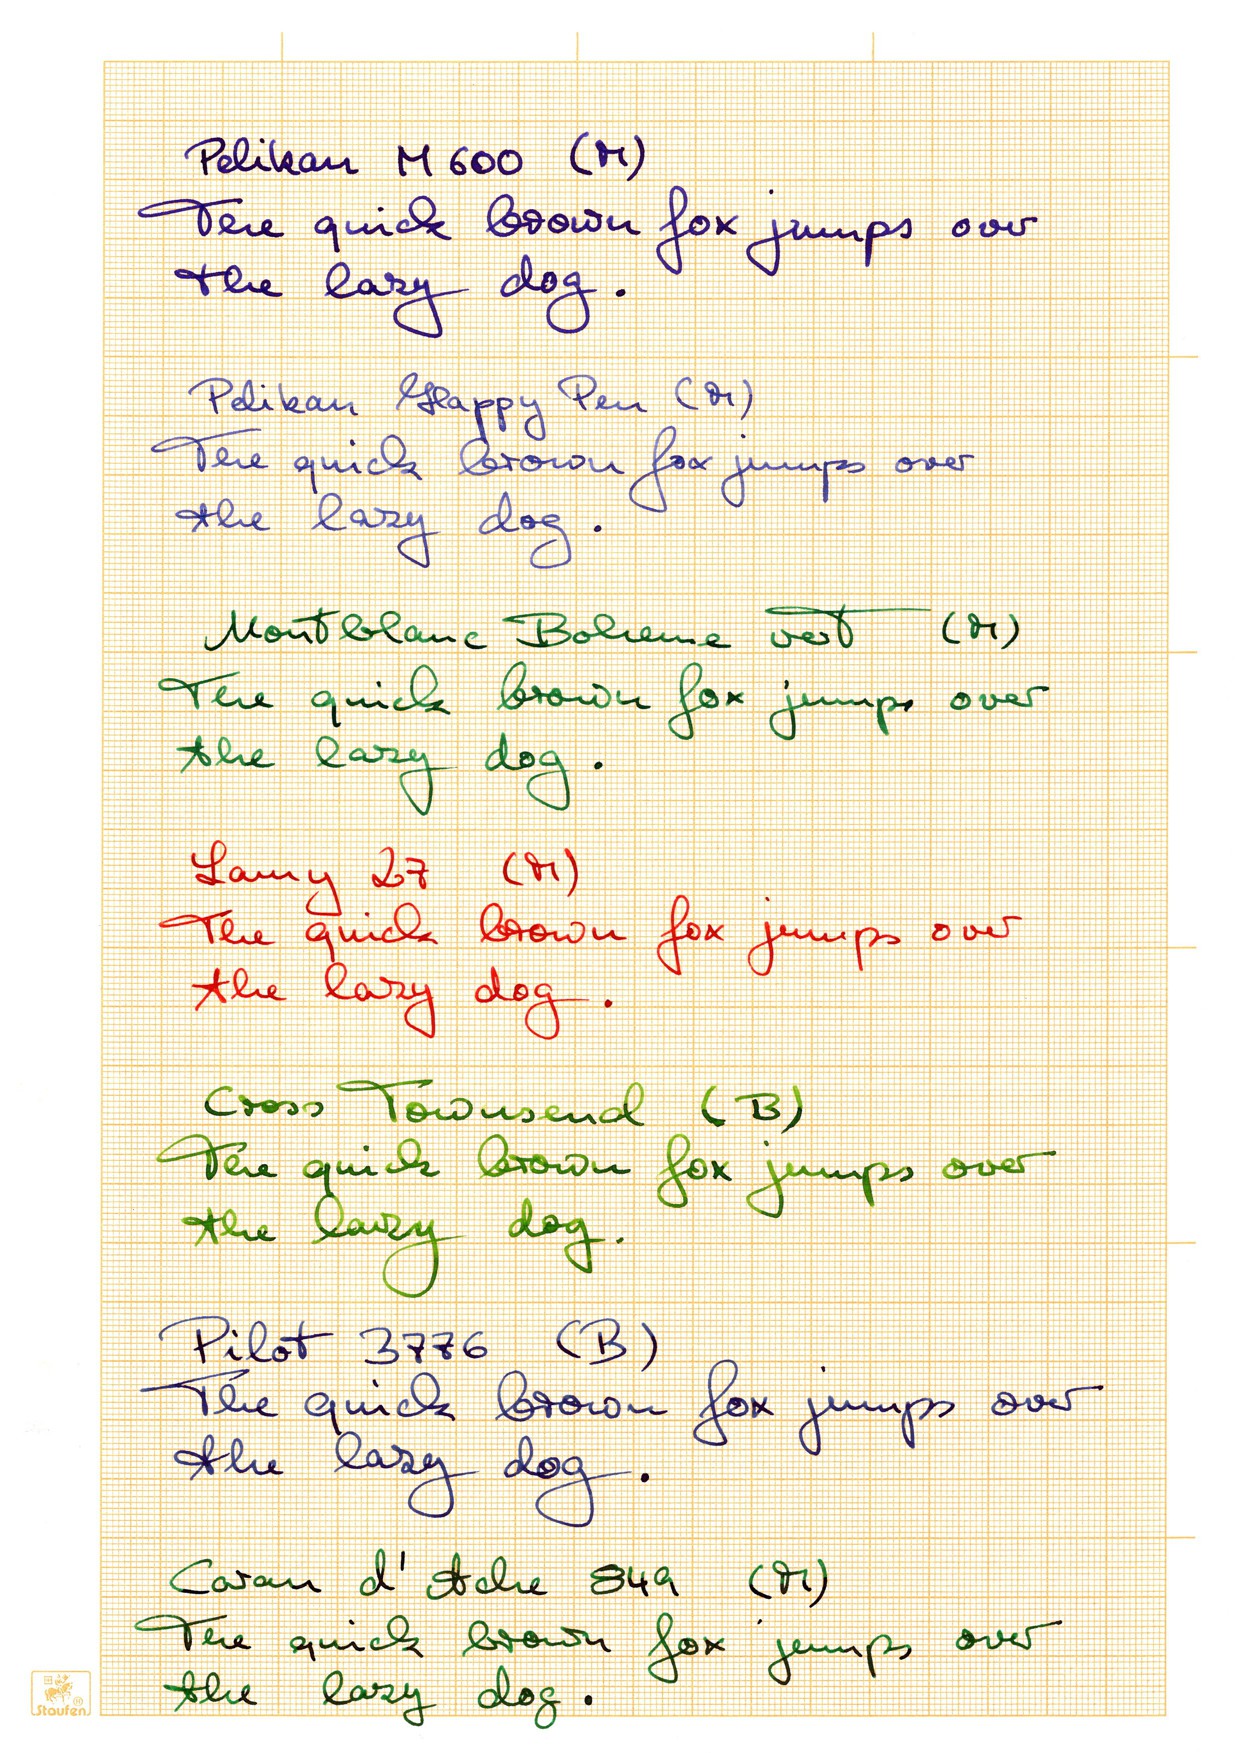 Pelikan M 600 (M)
The quick brown fox jumps over
the lazy dog.
Pelikan Happy Pen (M)
The quick brown fox jumps over
the lazy dog.
Montblanc Boheme vert (M)
The quick brown fox jumps over
the lazy dog.
Lamy 27 (M)
The quick brown fox jumps over
the lazy dog.
Cross Townsend (B)
The quick brown fox jumps over
the lazy dog.
Pilot 3776 (B)
The quick brown fox jumps over
the lazy dog.
Caran d'Ache 849 (M)
The quick brown fox jumps over
the lazy dog.
Staufen